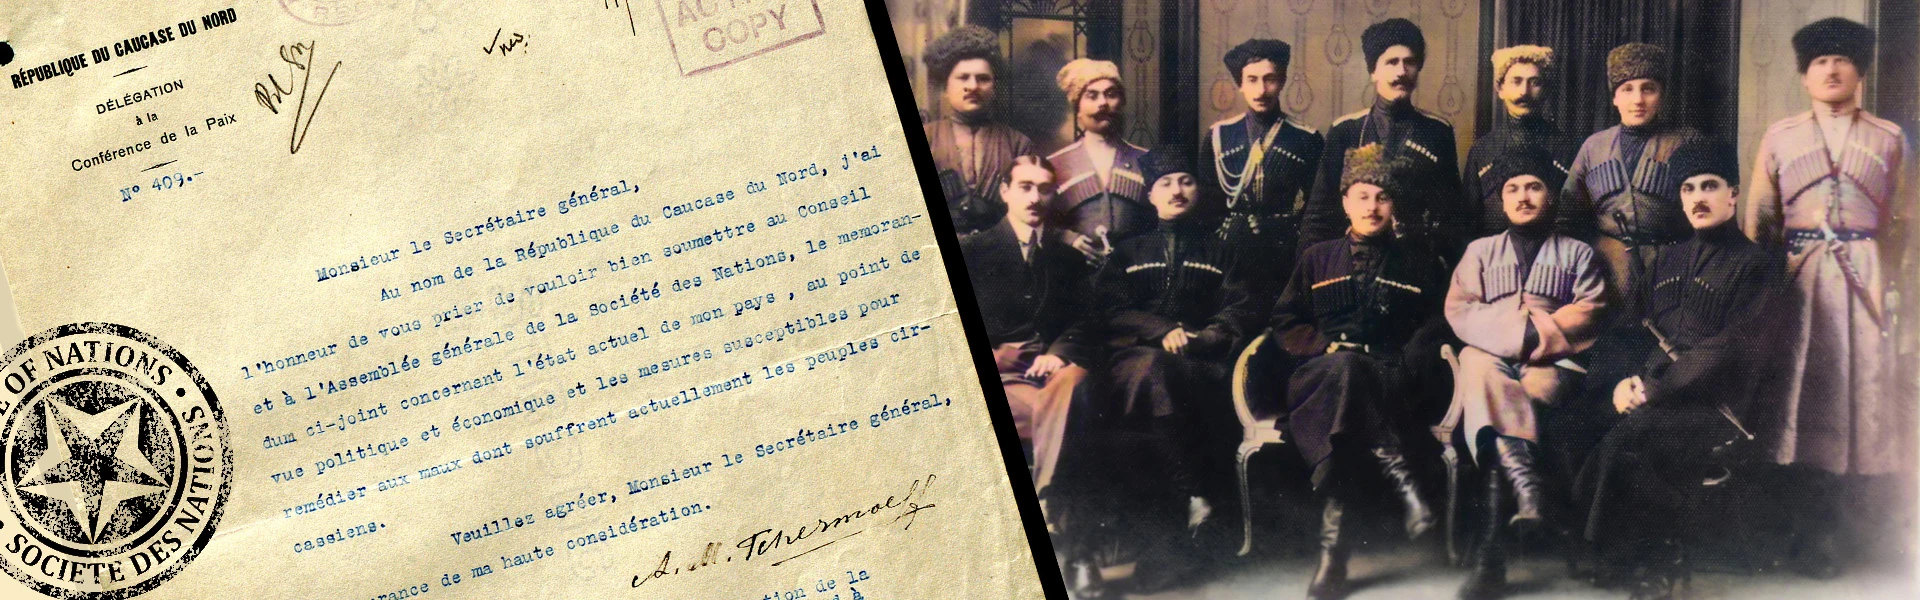 RÉPUBLIQUE DU CAUCASE DU NORD
DÉLÉGATION
à la
Conférence de la Paix
N° 409.-
COPY
Monsieur le Secrétaire général,
Au nom de la République du Caucase du Nord, j'ai
l'honneur de vous prier de vouloir bien soumettre au Conseil
et à l'Assemblée générale de la Société des Nations, le memoran-
dum ci-joint concernant l'état actuel de mon pays , au point de
vue politique et économique et les mesures susceptibles pour
remédier aux maux dont souffrent actuellement les peuples cir-
cassiens.
Veuillez agréer, Monsieur le Secrétaire général,
rance de ma haute considération.
A. M. Tchermoeff
tion de la
à
OF NATIONS • SOCIETE DES NATIONS •